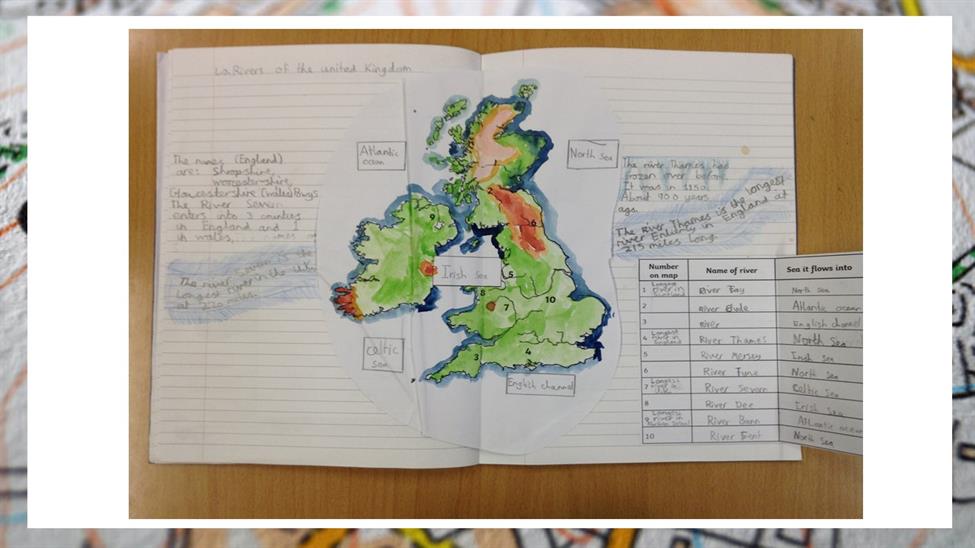 L.o. Rivers of the united Kingdom
The names (England)
are: Shropshire,
worcestershire,
Gloucestershire (wales) Powys
The River Severn
enters into 3 counties
in England and 1
in wales,
The river
Longest river in the
at 220 miles.
Atlantic
ocean
North Sea
Irish Sea
Celtic
Sea
English channel
9
6
5
8
7
10
3
4
The river Thames had
frozen over before
It was in 1150
About 900 years
ago.
The River Thames is the longest
river Entirely in England at
215 miles Long.
Number on map Name of river Sea it flows into
1 Longest river in Scotland River Tay North Sea
2 River Clyde Atlantic ocean
3 River English channel
4 Longest river in England River Thames North Sea
5 River Mersey Irish Sea
6 River Tyne North Sea
7 Longest river in River Severn Celtic Sea
8 River Dee Irish Sea
9 Longest river in River Bann Atlantic ocean
10 River Trent North Sea